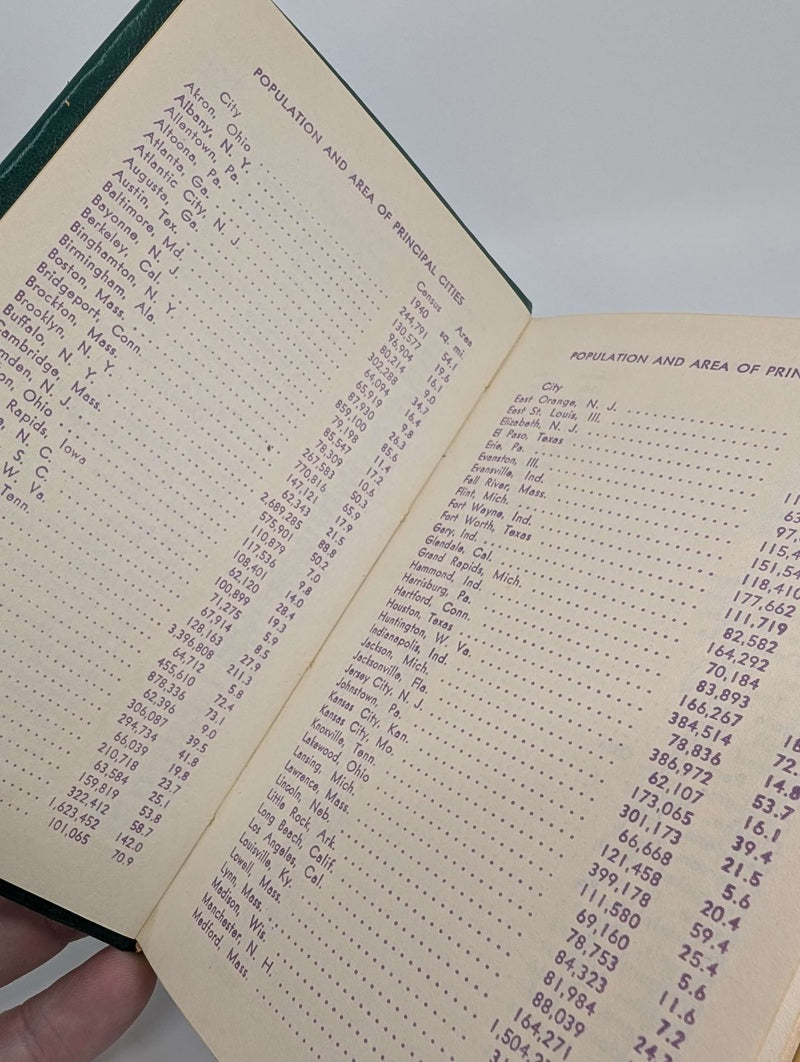 POPULATION AND AREA OF PRINCIPAL CITIES
City Census 1940 Area sq. mi.
Akron, Ohio 244,791 54.1
Albany, N. Y. 130,577 19.6
Allentown, Pa. 96,904 16.1
Altoona, Pa. 80,214 9.0
Atlanta, Ga. 302,288 34.7
Atlantic City, N. J. 64,094 16.4
Augusta, Ga. 65,919 9.8
Austin, Tex. 87,930 26.3
Baltimore, Md. 859,100 85.6
Bayonne, N. J. 79,198 11.4
Berkeley, Cal. 85,547 17.2
Binghamton, N. Y. 78,309 10.6
Birmingham, Ala. 267,583 50.3
Boston, Mass. 770,816 65.9
Bridgeport, Conn. 147,121 17.9
Brockton, Mass. 62,343 21.5
Brooklyn, N. Y. 2,689,285 88.8
Buffalo, N. Y. 575,901 50.2
Cambridge, Mass. 110,879 7.0
mden, N. J. 117,536 9.8
on, Ohio 108,401 14.0
Rapids, Iowa 62,120 28.4
N. C. 100,899 19.3
S. C. 71,275 5.9
W. Va. 67,914 8.5
Tenn. 128,163 27.9
3,396,808 211.3
64,712 5.8
455,610 72.4
878,336 73.1
62,396 9.0
306,087 39.5
294,734 41.8
66,039 19.8
210,718 23.7
63,584 25.1
159,819 53.8
322,412 58.7
1,623,452 142.0
101,065 70.9
POPULATION AND AREA OF PRIN
City
East Orange, N. J.
East St. Louis, Ill.
Elizabeth, N. J.
El Paso, Texas
Erie, Pa. 11
Evanston, Ill. 63
Evansville, Ind. 97,
Fall River, Mass. 115,4
Flint, Mich. 151,54
Fort Wayne, Ind. 118,410
Fort Worth, Texas 177,662
Gary, Ind. 111,719
Glendale, Cal. 82,582
Grand Rapids, Mich. 164,292
Hammond, Ind. 70,184
Harrisburg, Pa. 83,893
Hartford, Conn. 166,267 18
Houston, Texas 384,514 72.
Huntington, W. Va. 78,836 14.8
Indianapolis, Ind. 386,972 53.7
Jackson, Mich. 62,107 16.1
Jacksonville, Fla. 173,065 39.4
Jersey City, N. J. 301,173 21.5
Johnstown, Pa. 66,668 5.6
Kansas City, Kan. 121,458 20.4
Kansas City, Mo. 399,178 59.4
Knoxville, Tenn. 111,580 25.4
Lakewood, Ohio 69,160 5.6
Lansing, Mich. 78,753 11.6
Lawrence, Mass. 84,323 7.2
Lincoln, Neb. 81,984 24.
Little Rock, Ark. 88,039
Long Beach, Calif. 164,271
Los Angeles, Cal. 1,504,2
Louisville, Ky. 31
Lowell, Mass.
Lynn, Mass.
Madison, Wis.
Manchester, N. H.
Medford, Mass.